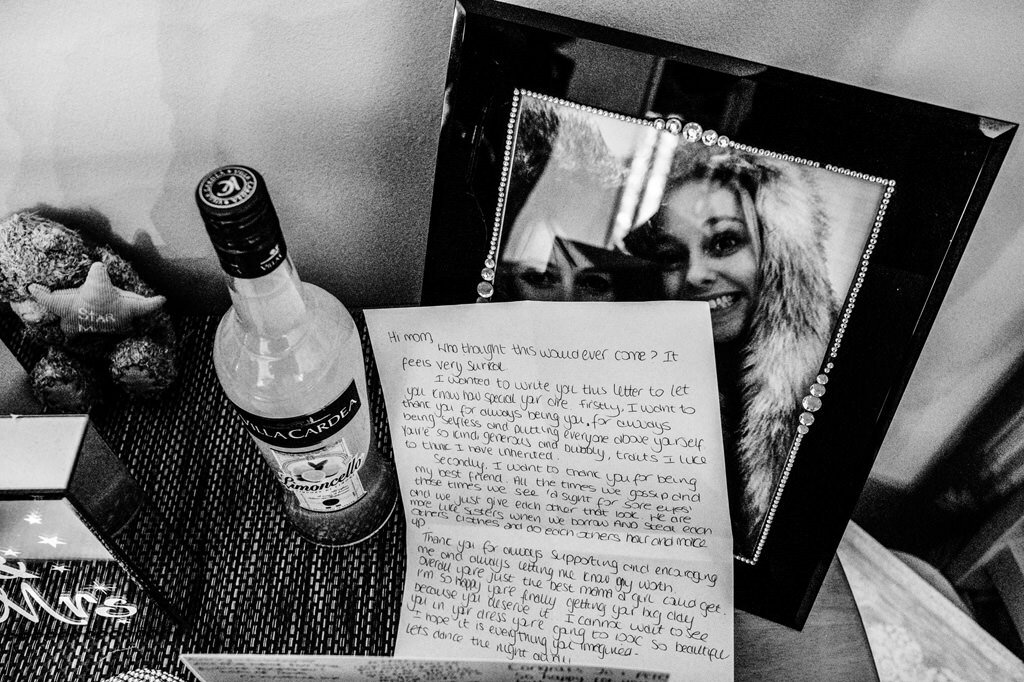 STAR
VILLA CARDEA
Limoncello
Mrs
Hi mom,
Who thought this would ever come? It
feels very surreal
I wanted to write you this letter to let
you know how special you are. Firstly, I want to
thank you for always being you, for always
being selfless and putting everyone above yourself
You're so kind, generous and bubbly, traits I like
to think I have inherited.
Secondly, I want to thank you for being
my best friend. All the times we gossip and
those times we see 'a sight for sore eyes'
and we just give each other that look. We are
more like sisters when we borrow AND steal each
others clothes and do each others hair and make
up
Thank you for always supporting and encouraging
me and always letting me know my worth.
Overall you're just the best mama a girl could get.
I'm so happy you're finally getting your big day
because you deserve it. I cannot wait to see
you in your dress you're going to look so beautiful
I hope it is everything you imagined.
Lets dance the night away!!